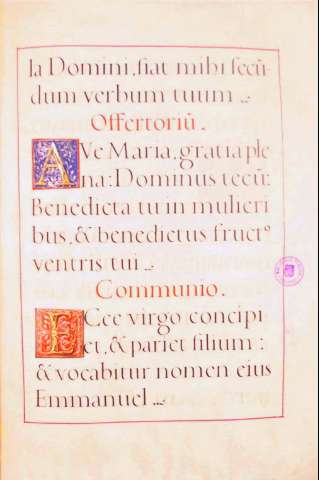 la Domini, fiat mihi secū-
dum verbum tuum ..
Offertoriū.
AVe Maria, gratia ple
na: Dominus tecū:
Benedicta tu in mulieri
bus, & benedictus fructꝰ
ventris tui ..
Communio.
ECce virgo concipi
et, & pariet filium:
& vocabitur nomen eius
Emmanuel ..